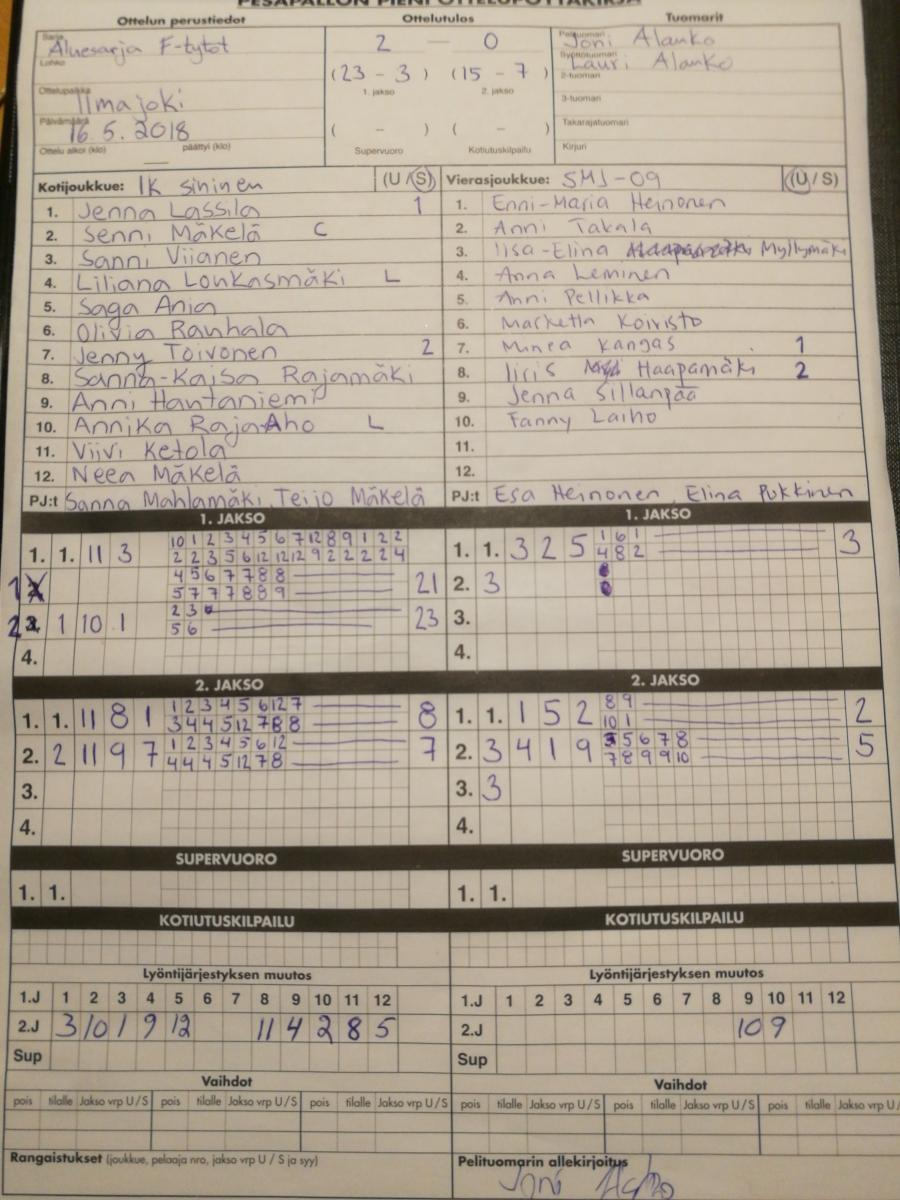 PESÄPALLON PIENI OTTELUPÖYTÄKIRJA
Ottelun perustiedot Ottelutulos Tuomarit
Sarja Aluesarja F-tytöt
Lohko
Ottelupaikka Ilmajoki
Päivämäärä 16.5.2018
Ottelu alkoi (klo) päättyi (klo)
2 — 0
(23 - 3) (15 - 7)
1. jakso 2. jakso
( - ) ( - )
Supervuoro Kotiutuskilpailu
Pelituomari Joni Alanko
Syöttötuomari Lauri Alanko
2-tuomari
3-tuomari
Takarajatuomari
Kirjuri
Kotijoukkue: IK sininen (U/S)
1. Jenna Lassila 1
2. Senni Mäkelä C
3. Sanni Viianen
4. Liliana Loukasmäki L
5. Saga Anja
6. Olivia Rauhala
7. Jenny Toivonen 2
8. Sanna-Kaisa Rajamäki
9. Anni Hautaniemi
10. Annika Raja-Aho L
11. Viivi Ketola
12. Neea Mäkelä
PJ:t Sanna Mahlamäki, Teijo Mäkelä
Vierasjoukkue: SMJ-09 (U/S)
1. Enni-Maria Heinonen
2. Anni Takala
3. Iisa-Elina Myllymäki
4. Anna Leminen
5. Anni Pellikka
6. Marketta Koivisto
7. Minea Kangas 1
8. Iiris Haapamäki 2
9. Jenna Sillanpää
10. Fanny Laiho
11.
12.
PJ:t Esa Heinonen, Elina Pukkinen
1. JAKSO
1. 1. 11 3 10 1 2 3 4 5 6 7 12 8 9 1 2 2
2 2 3 5 6 12 12 12 9 2 2 2 2 4
1 4 5 6 7 7 8 8
5 7 7 7 8 8 9 21
2 1 10 1 2 3
5 6 23
4.
1. JAKSO
1. 1. 3 2 5 1 6 1
4 8 2 3
2. 3
3.
4.
2. JAKSO
1. 1. 11 8 1 1 2 3 4 5 6 12 7
3 4 4 5 12 7 8 8 8
2. 2 11 9 7 1 2 3 4 5 6 12
4 4 4 5 12 7 8 7
3.
4.
2. JAKSO
1. 1. 1 5 2 8 9
10 1 2
2. 3 4 1 9 3 5 6 7 8
7 8 9 9 10 5
3. 3
4.
SUPERVUORO SUPERVUORO
1. 1. 1. 1.
KOTIUTUSKILPAILU KOTIUTUSKILPAILU
Lyöntijärjestyksen muutos
1.J 1 2 3 4 5 6 7 8 9 10 11 12
2.J 3 10 1 9 12 11 4 2 8 5
Sup
Lyöntijärjestyksen muutos
1.J 1 2 3 4 5 6 7 8 9 10 11 12
2.J 10 9
Sup
Vaihdot Vaihdot
pois tilalle Jakso vrp U/S pois tilalle Jakso vrp U/S pois tilalle Jakso vrp U/S
pois tilalle Jakso vrp U/S pois tilalle Jakso vrp U/S pois tilalle Jakso vrp U/
Rangaistukset (joukkue, pelaaja nro, jakso vrp U / S ja syy)
Pelituomarin allekirjoitus
Joni